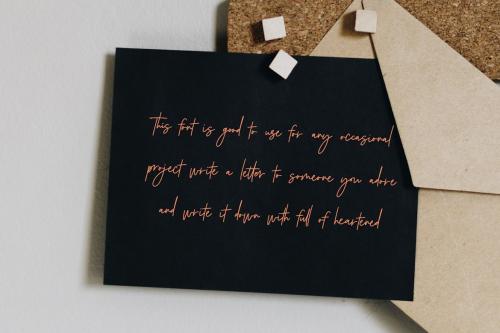 This font is good to use for any occasional
project write a letter to someone you adore
and write it down with full of heartened